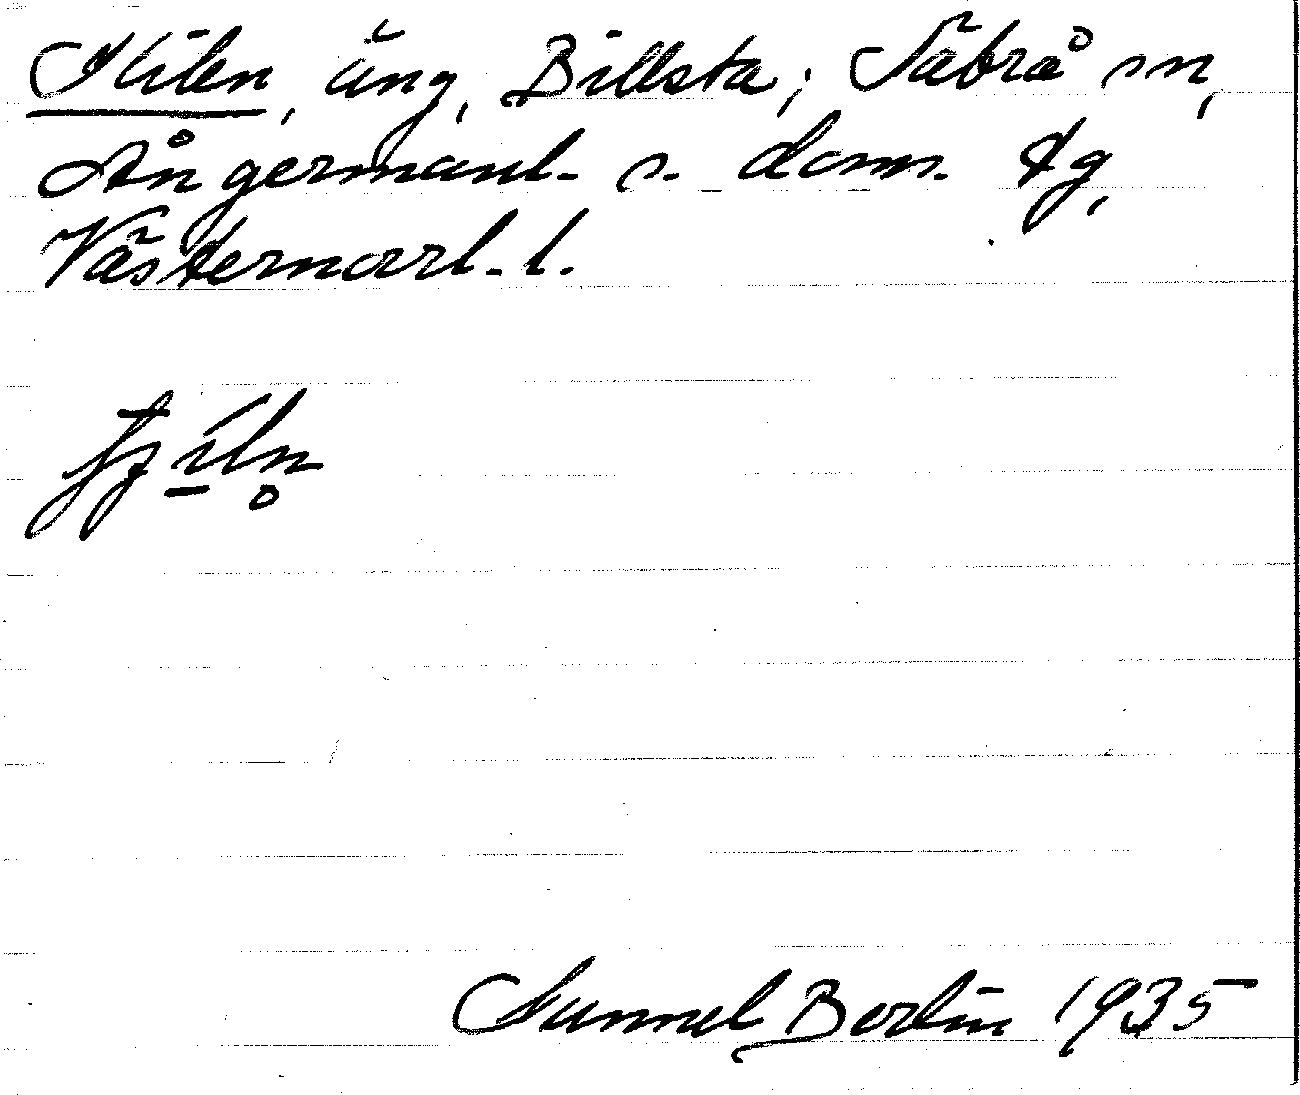 Kilen, äng, Billsta, Säbrå sn,
Ångermanl. s. doms. tg,
Västernorrl. l.
Gunnel Berlin 1935